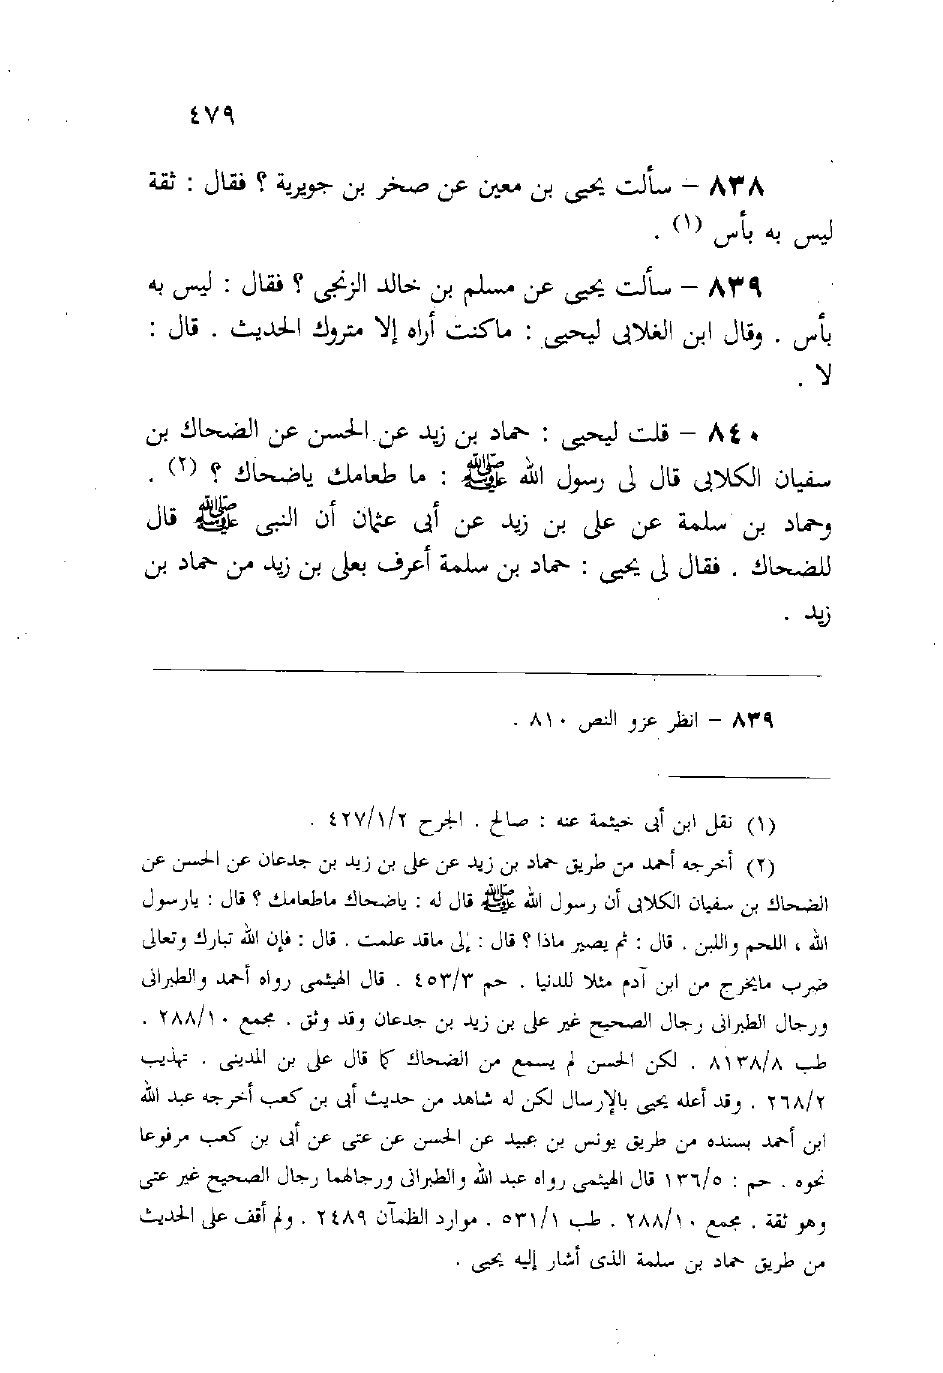 ٤٧٩
٨٣٨ – سألت يحيى بن معين عن صخر بن جويرية ؟ فقال : ثقة
ليس به بأس (١) .
٨٣٩ – سألت يحيى عن مسلم بن خالد الزنجى ؟ فقال : ليس به
بأس . وقال ابن الغلابى ليحيى : ماكنت أراه إلا متروك الحديث . قال :
لا .
٨٤٠ – قلت ليحيى : حماد بن زيد عن الحسن عن الضحاك بن
سفيان الكلابى قال لى رسول الله ﷺ : ما طعامك ياضحاك ؟ (٢) .
وحماد بن سلمة عن على بن زيد عن أبى عثمان أن النبى ﷺ قال
للضحاك . فقال لى يحيى : حماد بن سلمة أعرف بعلى بن زيد من حماد بن
زيد .
٨٣٩ – انظر عزو النص ٨١٠ .
(١) نقل ابن أبى خيثمة عنه : صالح . الجرح ٤٢٧/١/٢ .
(٢) أخرجه أحمد من طريق حماد بن زيد عن على بن زيد بن جدعان عن الحسن عن
الضحاك بن سفيان الكلابى أن رسول الله ﷺ قال له : ياضحاك ماطعامك ؟ قال : يارسول
الله ، اللحم واللبن . قال : ثم يصير ماذا ؟ قال : إلى ماقد علمت . قال : فإن الله تبارك وتعالى
ضرب مايخرج من ابن آدم مثلا للدنيا . حم ٤٥٣/٣ . قال الهيثمى رواه أحمد والطبرانى
ورجال الطبرانى رجال الصحيح غير على بن زيد بن جدعان وقد وثق . مجمع ٢٨٨/١٠ .
طب ٨١٣٨/٨ . لكن الحسن لم يسمع من الضحاك كما قال على بن المدينى . تهذيب
٢٦٨/٢ . وقد أعله يحيى بالإرسال لكن له شاهد من حديث أبى بن كعب أخرجه عبد الله
ابن أحمد بسنده من طريق يونس بن عبيد عن الحسن عن عتى عن أبى بن كعب مرفوعا
نحوه . حم : ١٣٦/٥ قال الهيثمى رواه عبد الله والطبرانى ورجالهما رجال الصحيح غير عتى
وهو ثقة . مجمع ٢٨٨/١٠ . طب ٥٣١/١ . موارد الظمآن ٢٤٨٩ . ولم أقف على الحديث
من طريق حماد بن سلمة الذى أشار إليه يحيى .